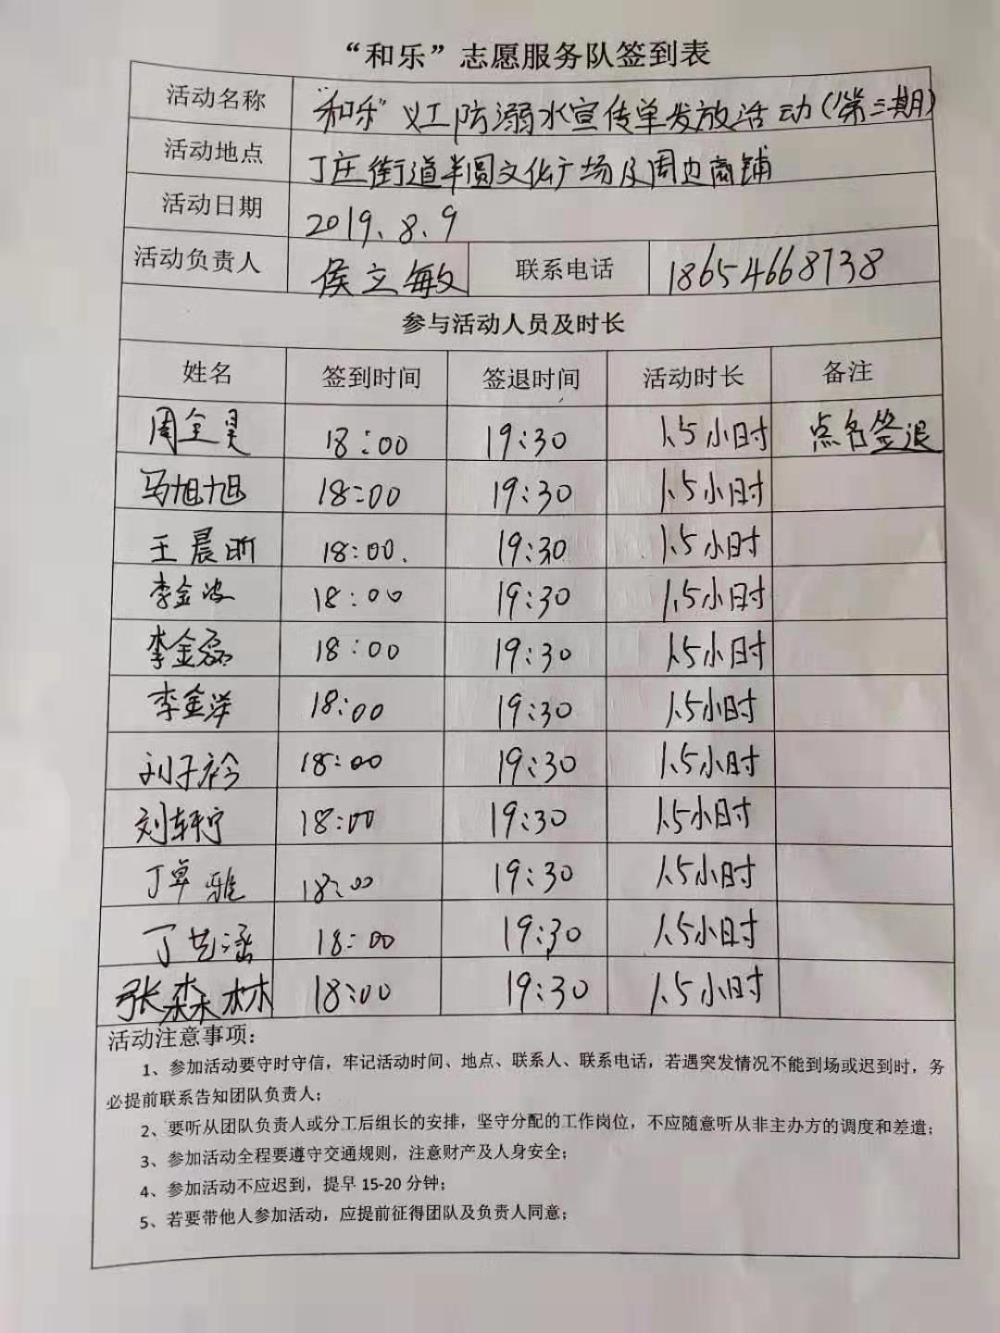 “和乐”志愿服务队签到表
活动名称 “和乐”义工防溺水宣传单发放活动(第三期)
活动地点 丁庄街道半圆文化广场及周边商铺
活动日期 2019.8.9
活动负责人 侯立敏 联系电话 18654668738
参与活动人员及时长
姓名 签到时间 签退时间 活动时长 备注
周全昊 18:00 19:30 1.5小时 点名签退
马旭旭 18:00 19:30 1.5小时
王晨昕 18:00. 19:30 1.5小时
李金波 18:00 19:30 1.5小时
李金磊 18:00 19:30 1.5小时
李金洋 18:00 19:30 1.5小时
刘子衿 18:00 19:30 1.5小时
刘轩宁 18:00 19:30 1.5小时
丁卓雅 18:00 19:30 1.5小时
丁艺涵 18:00 19:30 1.5小时
张森林 18:00 19:30 1.5小时
活动注意事项:
1、参加活动要守时守信，牢记活动时间、地点、联系人、联系电话，若遇突发情况不能到场或迟到时，务
必提前联系告知团队负责人；
2、要听从团队负责人或分工后组长的安排，坚守分配的工作岗位，不应随意听从非主办方的调度和差遣；
3、参加活动全程要遵守交通规则，注意财产及人身安全；
4、参加活动不应迟到，提早 15-20 分钟；
5、若要带他人参加活动，应提前征得团队及负责人同意；